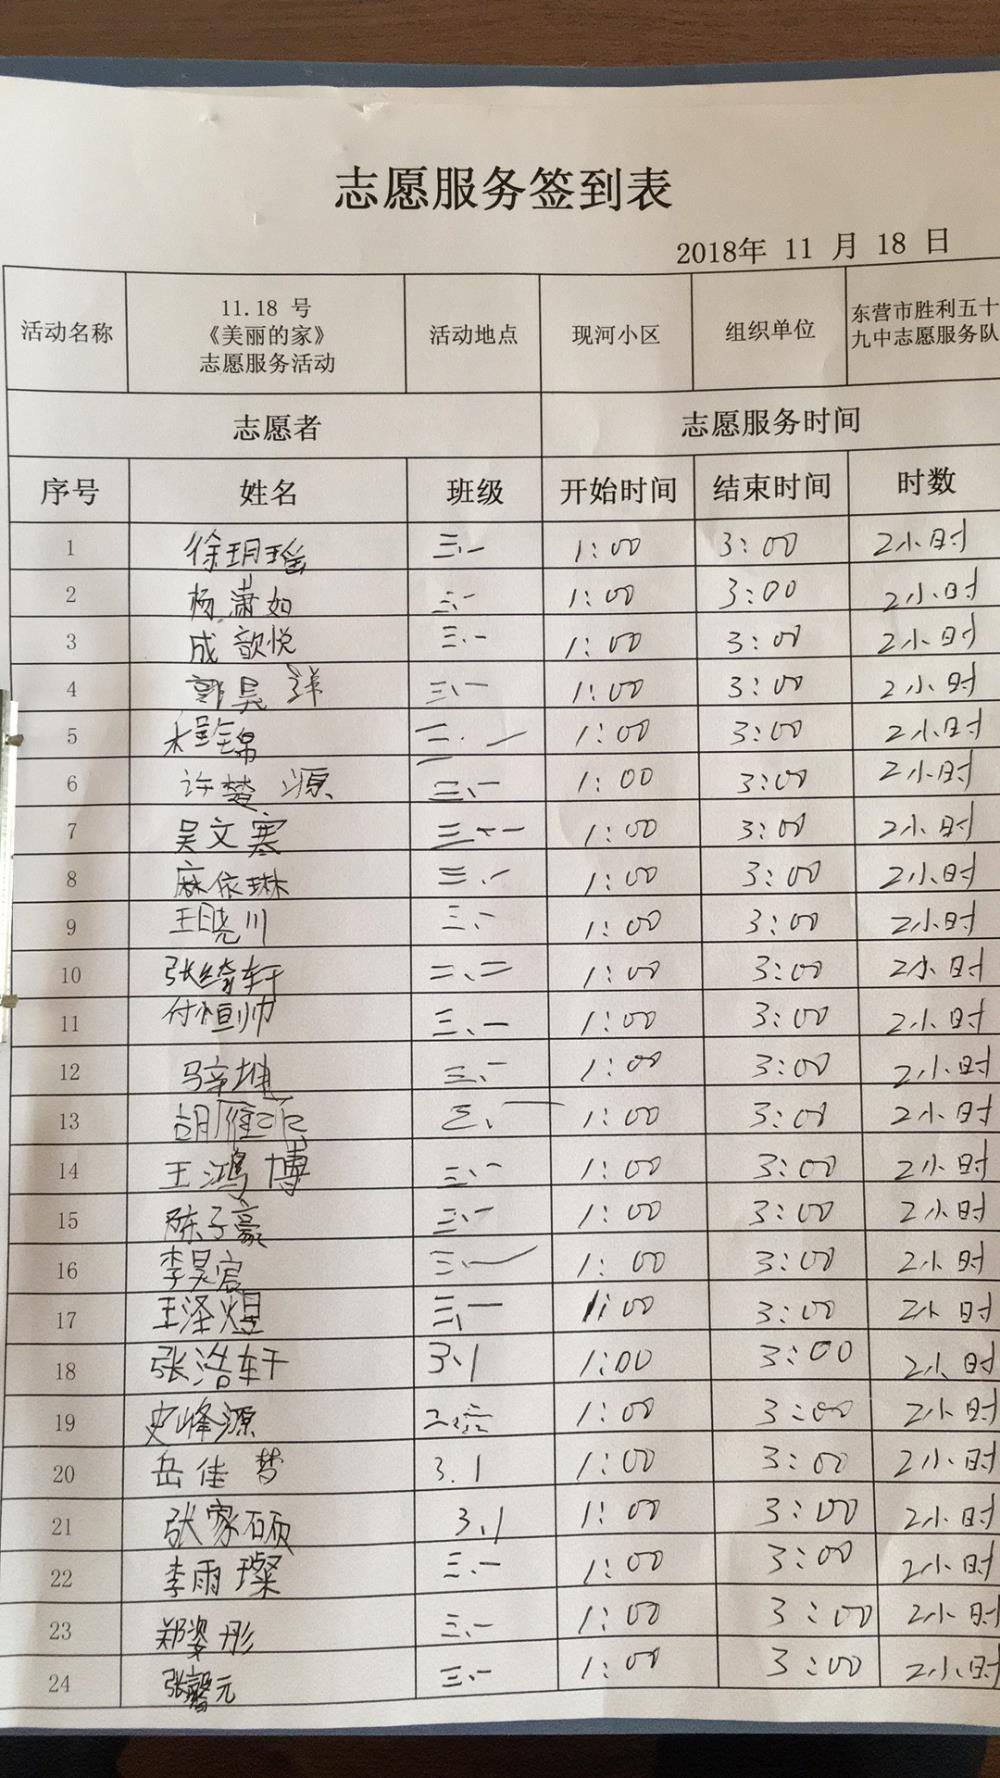 志愿服务签到表
2018年 11 月 18 日
活动名称 11.18 号《美丽的家》志愿服务活动 活动地点 现河小区 组织单位 东营市胜利五十九中志愿服务队
志愿者 志愿服务时间
序号 姓名 班级 开始时间 结束时间 时数
1 徐玥瑶 三、一 1:00 3:00 2小时
2 杨潇如 三、一 1:00 3:00 2小时
3 成歆悦 三、一 1:00 3:00 2小时
4 郭昊洋 三、一 1:00 3:00 2小时
5 1:00 3:00 2小时
6 许楚源 三、一 1:00 3:00 2小时
7 吴文寒 三、一 1:00 3:00 2小时
8 麻依琳 三、一 1:00 3:00 2小时
9 王晓川 三、一 1:00 3:00 2小时
10 张绮轩 二、二 1:00 3:00 2小时
11 付恒帅 三、一 1:00 3:00 2小时
12 三、一 1:00 3:00 2小时
13 三、一 1:00 3:00 2小时
14 王鸿博 三、一 1:00 3:00 2小时
15 陈子豪 三、一 1:00 3:00 2小时
16 李昊宸 三、一 1:00 3:00 2小时
17 王泽煜 三、一 1:00 3:00 2小时
18 张浩轩 3、1 1:00 3:00 2小时
19 史峰源 1:00 3:00 2小时
20 岳佳梦 3.1 1:00 3:00 2小时
21 张家硕 3、1 1:00 3:00 2小时
22 李雨璨 三、一 1:00 3:00 2小时
23 郑姿彤 三、一 1:00 3:00 2小时
24 张馨元 三、一 1:00 3:00 2小时